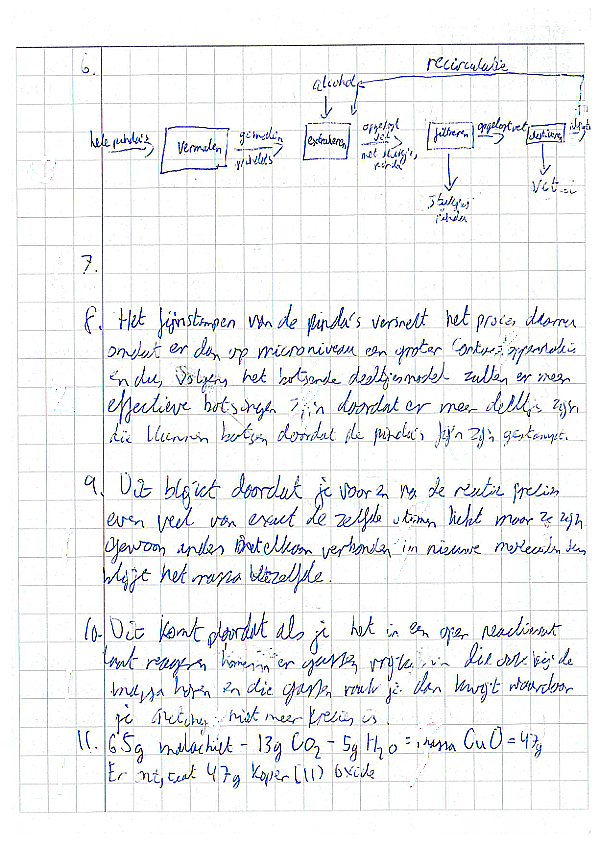 6.
recirculatie
alcohol
hele pinda's
vermalen
gemalen
pinda's
extraheren
opgelost
vet
met stukjes
pinda
filtreren
opgelost vet
destilleren
stukjes
pinda
7.
8. Het fijnstampen van de pinda's versnelt het proces daarom
omdat er dan op microniveau een groter contactoppervlakte
en dus volgens het botsende deeltjesmodel zullen er meer
effectieve botsingen zijn doordat er meer deeltjes zijn
die kunnen botsen doordat de pinda's fijn zijn gestampt.
9. Dit blijkt doordat je voor en na de reactie precies
even veel van exact de zelfde atomen hebt maar ze zijn
gewoon anders verbonden in nieuwe moleculen dus
blijft het massa hetzelfde.
10. Dit komt doordat als je het in een open reactievat
laat reageren komen er gassen vrij die ook bij de
massa horen en die gassen raak je dan kwijt waardoor
je meting niet meer precies is.
11. 65g malachiet - 13g CO2 - 5g H2O = massa CuO = 47g
Er ontstaat 47g koper (II) oxide